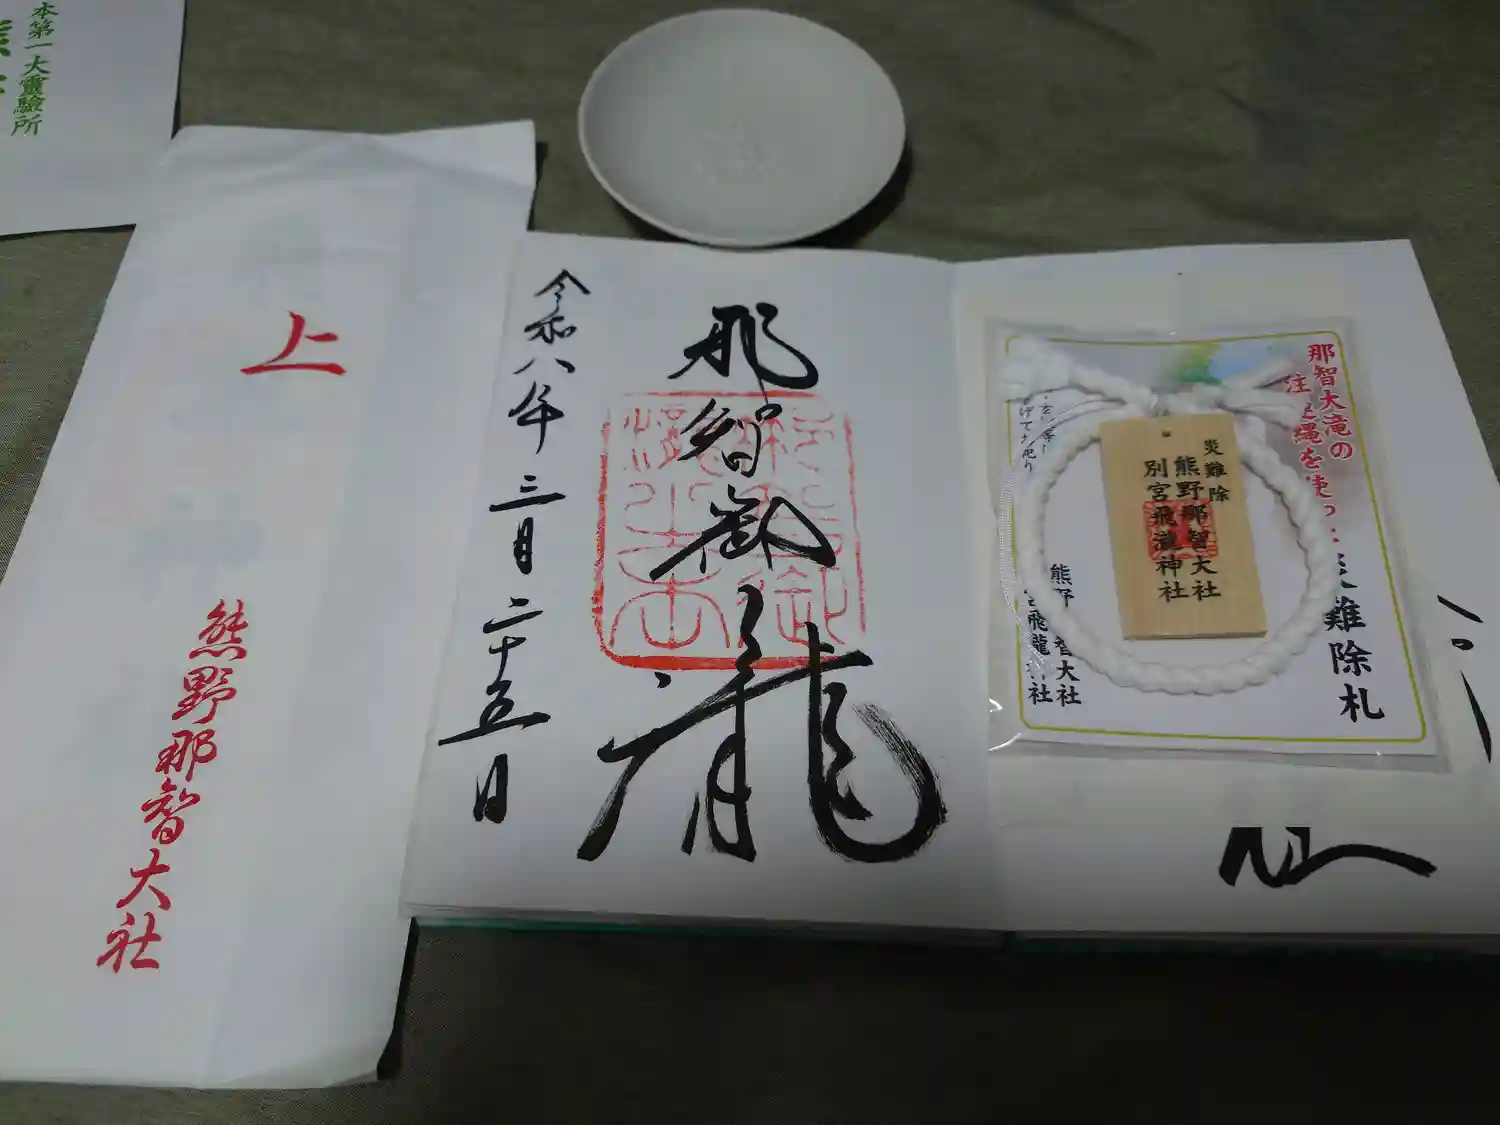 本第一大霊験所
上
熊野那智大社
令和八年三月二十五日
那智御瀧
那智大滝の
注連縄を使っ
災難除札
災難除
熊野那智大社
別宮飛瀧神社
熊野
智大社
飛瀧神社